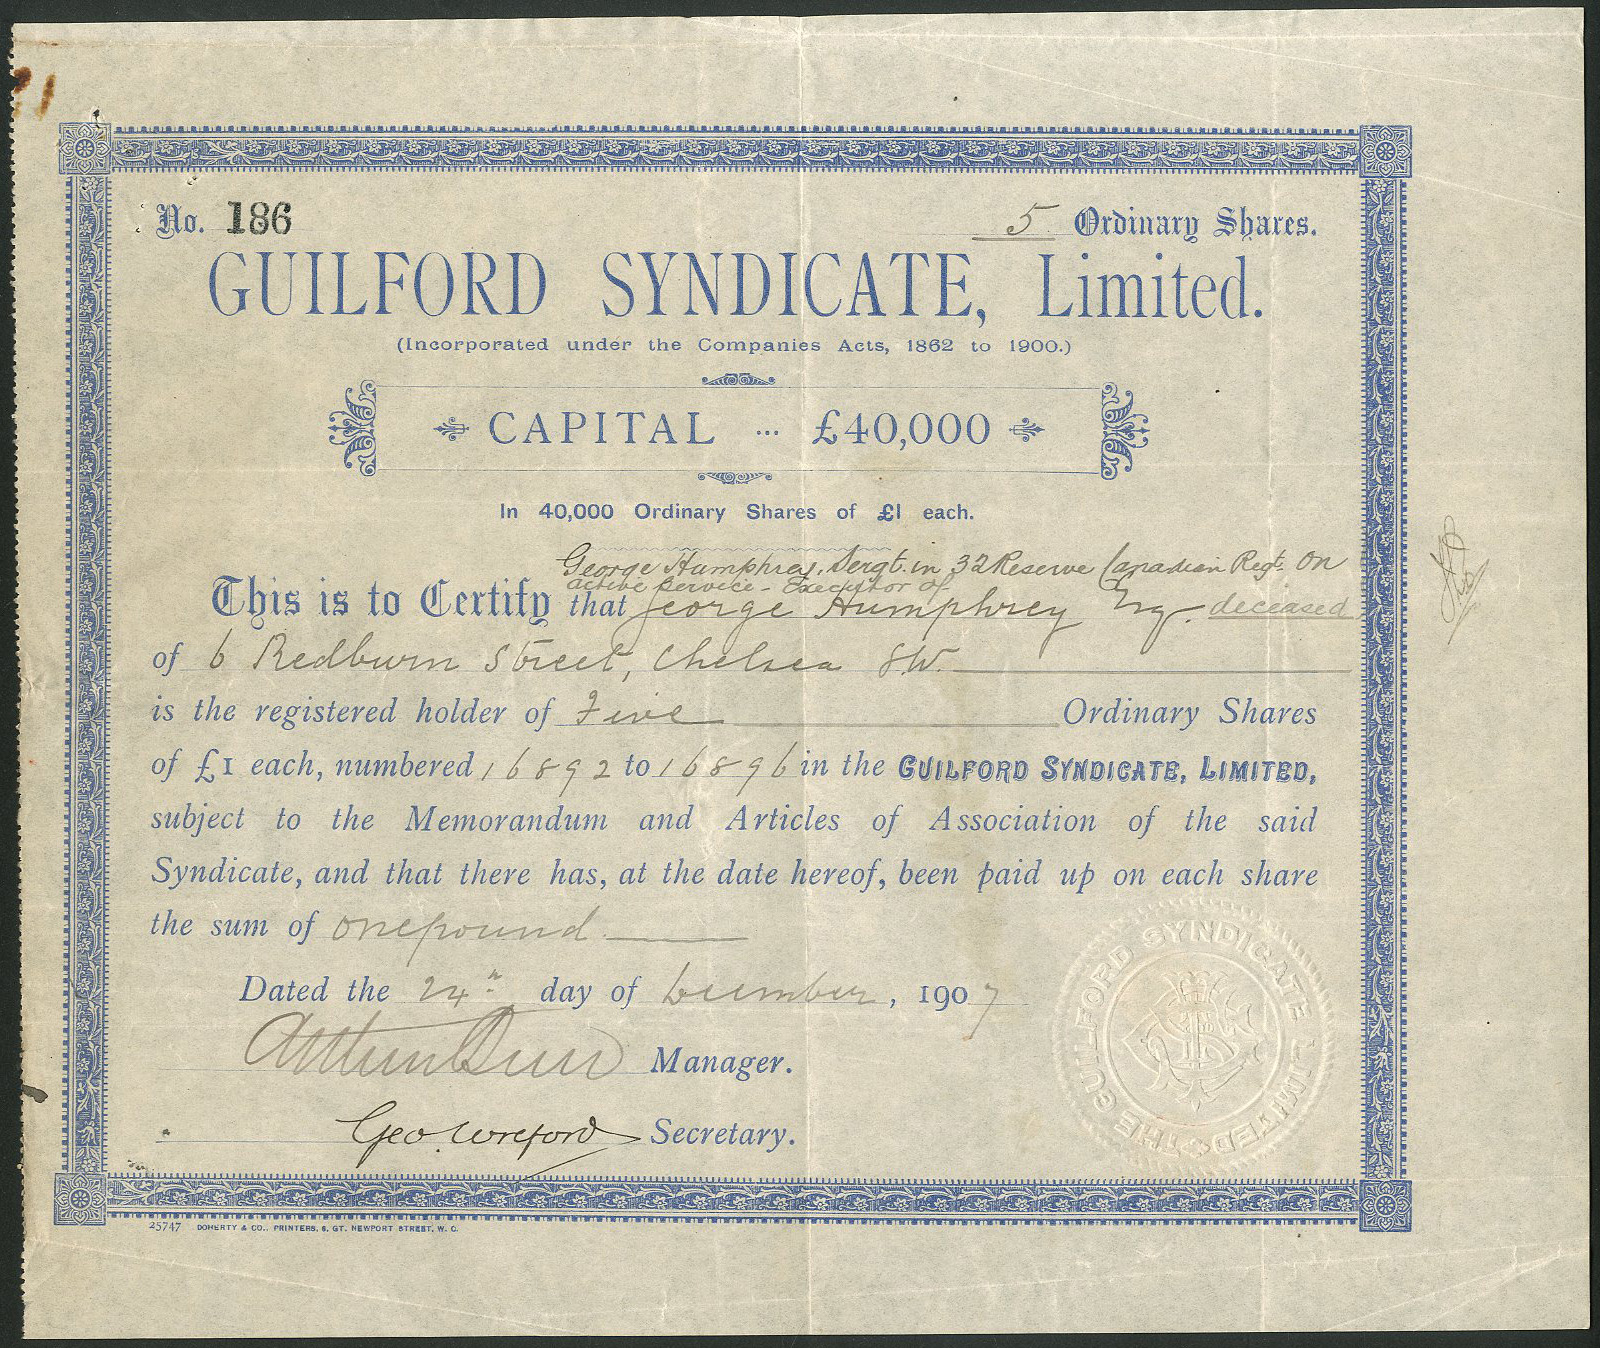 No. 186
5 Ordinary Shares.
GUILFORD SYNDICATE, Limited.
(Incorporated under the Companies Acts, 1862 to 1900.)
CAPITAL ... £40,000
In 40,000 Ordinary Shares of £1 each.
George Humphrey, Sergt. in 32 Reserve Canadian Regt. on
active service - Executor of
This is to Certify that George Humphrey Esq. deceased
of 6 Redburn Street, Chelsea S.W.
is the registered holder of Five Ordinary Shares
of £1 each, numbered 16892 to 16896 in the GUILFORD SYNDICATE, LIMITED,
subject to the Memorandum and Articles of Association of the said
Syndicate, and that there has, at the date hereof, been paid up on each share
the sum of one pound
Dated the 24th day of December, 1907
Manager.
Geo. Wreford Secretary.
THE GUILFORD SYNDICATE LIMITED
25747 DOHERTY & CO., PRINTERS, 6, GT. NEWPORT STREET, W. C.